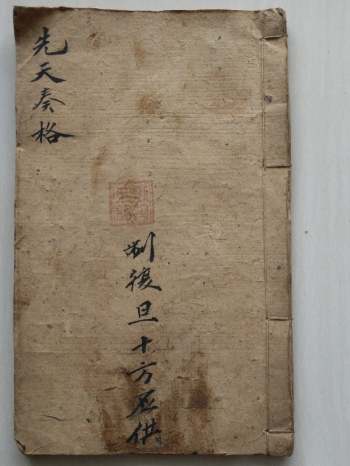 先天奏格
復旦十方供